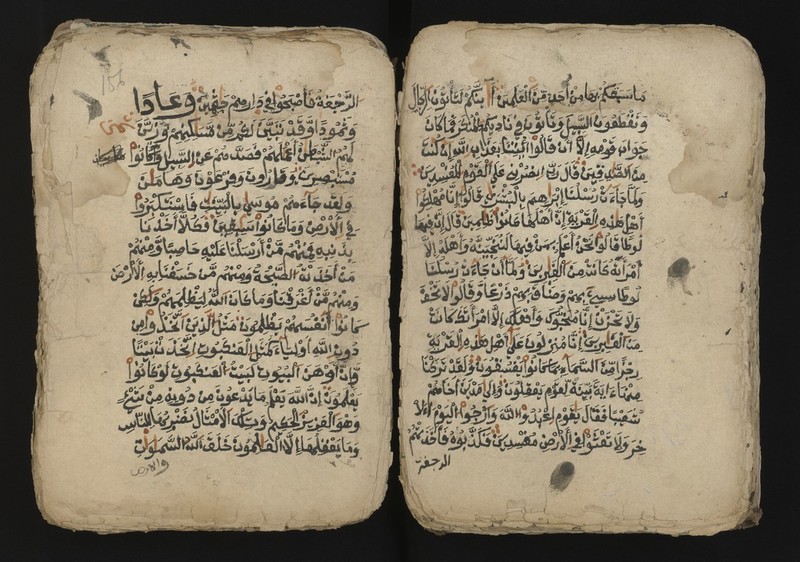 ما سبقكم بها من أحد من العلمين أئنكم لتأتون الرجال
وتقطعون السبيل وتأتون في ناديكم المنكر فما كان
جواب قومه إلا أن قالوا ائتنا بعذاب الله إن كنت
من الصدقين قال رب انصرني على القوم المفسدين
ولما جاءت رسلنا إبرهيم بالبشرى قالوا إنا مهلكوا
أهل هذه القرية إن أهلها كانوا ظلمين قال إن فيها
لوطا قالوا نحن أعلم بمن فيها لننجينه وأهله إلا
امرأته كانت من الغبرين ولما أن جاءت رسلنا
لوطا سيء بهم وضاق بهم ذرعا وقالوا لا تخف
ولا تحزن إنا منجوك وأهلك إلا امرأتك كانت
من الغبرين إنا منزلون على أهل هذه القرية
رجزا من السماء بما كانوا يفسقون ولقد تركنا
منها ءاية بينة لقوم يعقلون وإلى مدين أخاهم
شعيبا فقال يقوم اعبدوا الله وارجوا اليوم الا
خر ولا تعثوا في الأرض مفسدين فكذبوه فأخذتهم
الرجفة
الرجفة فأصبحوا في دارهم جثمين وعادا
وثمودا وقد تبين لكم من مسكنهم وزين
لهم الشيطن أعملهم فصدهم عن السبيل وكانوا
مستبصرين وقارون وفرعون وهامن
ولقد جاءهم موسى بالبينت فاستكبروا
في الأرض وما كانوا سبقين فكلا أخذنا
بذنبه فمنهم من أرسلنا عليه حاصبا ومنهم
من أخذته الصيحة ومنهم من خسفنا به الأرض
ومنهم من أغرقنا وما كان الله ليظلمهم ولكن
كانوا أنفسهم يظلمون مثل الذين اتخذوا من
دون الله أولياء كمثل العنكبوت اتخذت بيتا
وإن أوهن البيوت لبيت العنكبوت لو كانوا
يعلمون إن الله يعلم ما يدعون من دونه من شيء
وهو العزيز الحكيم وتلك الأمثل نضربها للناس
وما يعقلها إلا العلمون خلق الله السموات
والارض